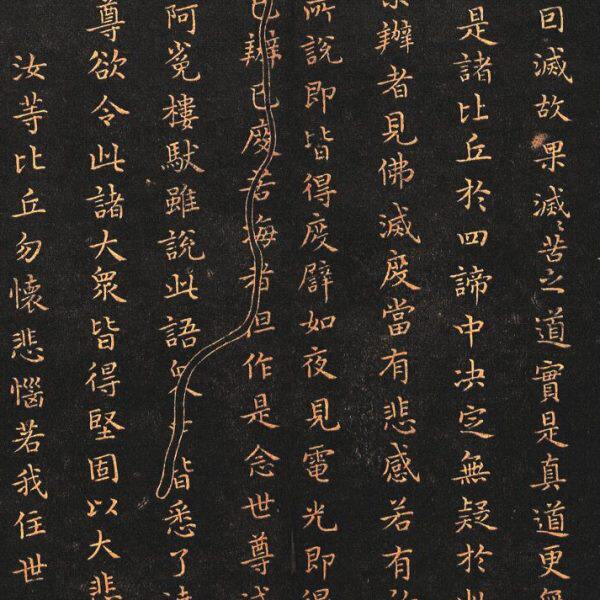 因滅故果滅滅苦之道實是真道更無
是諸比丘於四諦中决定無疑於此
辦者見佛滅度當有悲感若有
所說即皆得度譬如夜見電光即得
已辦已度苦海者但作是念世尊滅
阿㝹樓馱雖說此語衆皆悉了達
尊欲令此諸大衆皆得堅固以大悲
汝等比丘勿懷悲惱若我住世